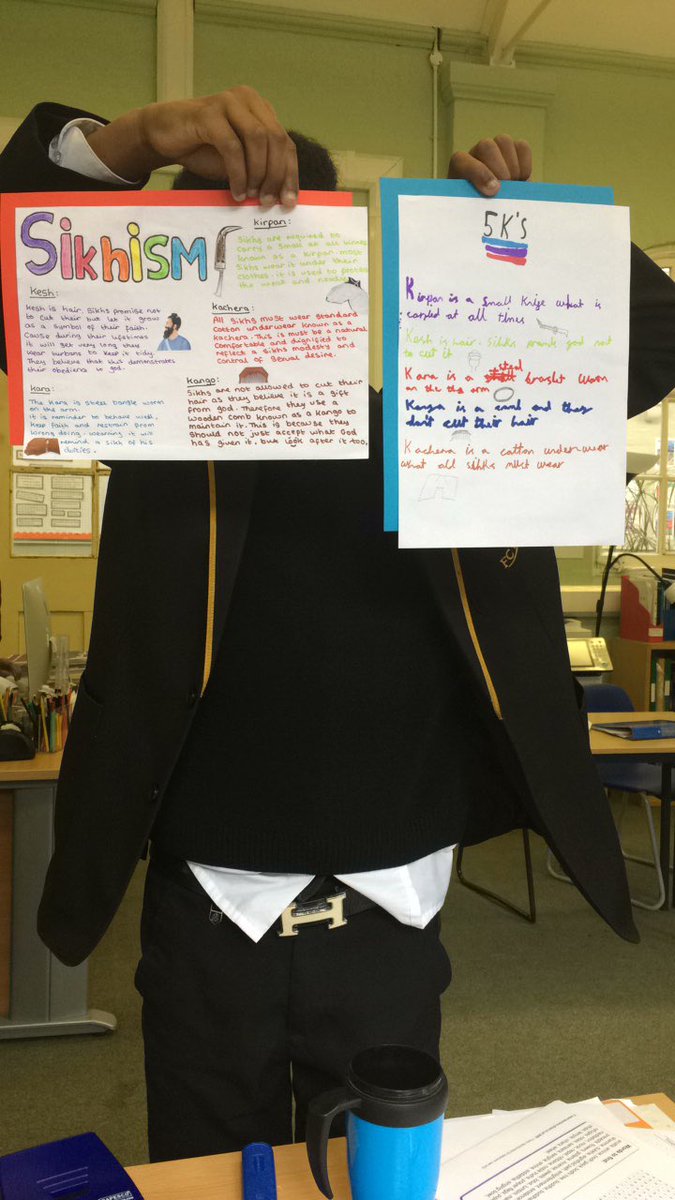 Sikhism
kirpan:
Sikhs are required to
carry a small at all times
known as a kirpan. most
Sikhs wear it under their
clothes. it is used to protect
the weak and needy.
kesh:
kesh is hair. Sikhs promise not
to cut their but let it grow
as a symbol of their faith.
Cause during their lifetimes
it will get very long they
wear turbans to keep it tidy.
They believe that this demonstrates
their obediens to god.
kachera:
All Sikhs must wear standard
Cotton underwear known as a
kachera. This is must be a natural
comfortable and dignified to
reflect a Sikhs modesty and
Control of Sexual desire.
Kara:
The Kara is steel bangle worn
on the arm.
it is reminder to behave well,
keep faith and restrain from
wrong doing. wearing it will
remind a sikh of his
duties.
Kango:
Sikhs are not allowed to cut their
hair as they believe it is a gift
from god. Therefore they use a
wooden comb known as a kango to
maintain it. This is because they
should not just accept what God
has given it, but look after it too.
5K's
Kirpan is a small knife what is
carled at all times
Kesh is hair. Sikhs promis god not
to cut it
Kara is a steel braslet worn
on the arm
Kanga is a comb and they
don't cut their hair
Kachera is a cotton underwear
what all sihks must wear
Words to find